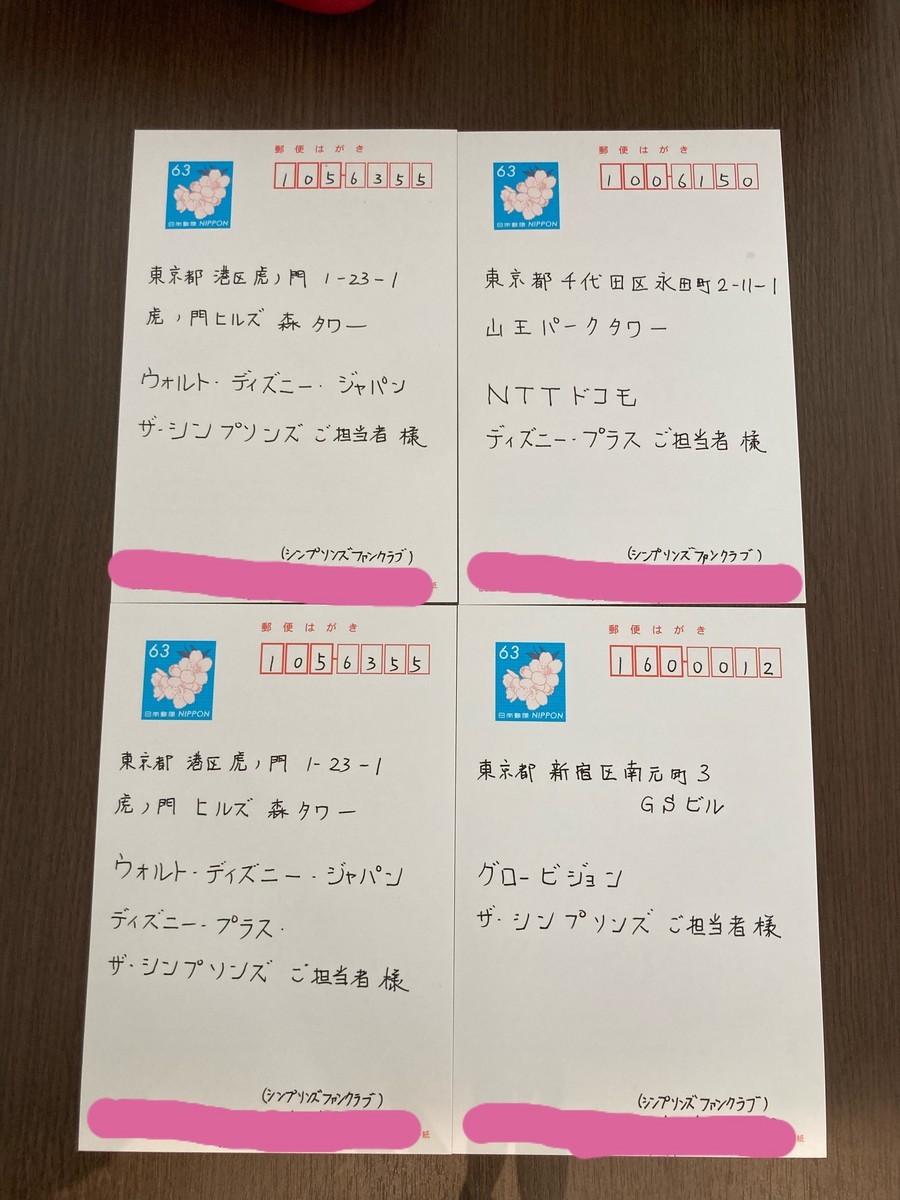 郵便はがき
63
日本郵便 NIPPON
1056355
東京都 港区虎ノ門 1-23-1
虎ノ門ヒルズ 森タワー
ウォルト・ディズニー・ジャパン
ザ・シンプソンズ ご担当者 様
(シンプソンズファンクラブ)
紙
郵便はがき
63
日本郵便 NIPPON
1006150
東京都千代田区永田町2-11-1
山王パークタワー
NTTドコモ
ディズニー・プラス ご担当者 様
(シンプソンズファンクラブ)
郵便はがき
63
日本郵便 NIPPON
1056355
東京都 港区虎ノ門 1-23-1
虎ノ門 ヒルズ 森タワー
ウォルト・ディズニー・ジャパン
ディズニー・プラス・
ザ・シンプソンズ ご担当者 様
(シンプソンズファンクラブ)
紙
郵便はがき
63
日本郵便 NIPPON
1600012
東京都 新宿区南元町3
GSビル
グロービジョン
ザ・シンプソンズ ご担当者 様
(シンプソンズファンクラブ)
紙